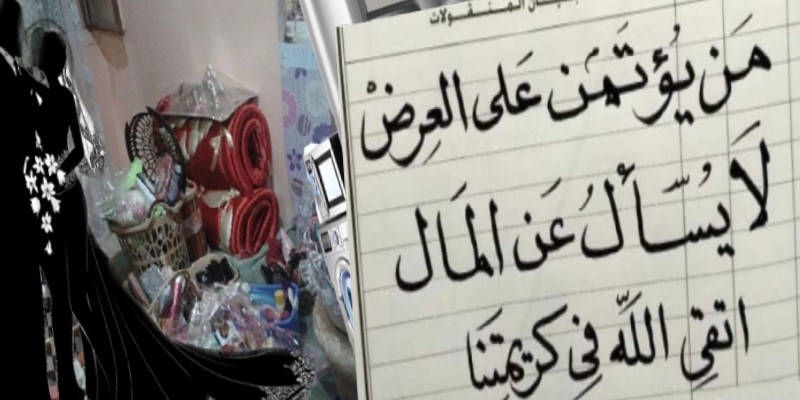 بيان المنقولات
مَن يُؤتمَن عَلى العِرضْ
لَا يُسأَلُ عَن المَال
اتقي اللَّه في كريمتِنَا